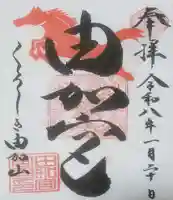 奉拝 令和八年一月二十日
由加宮
くらしき由加山